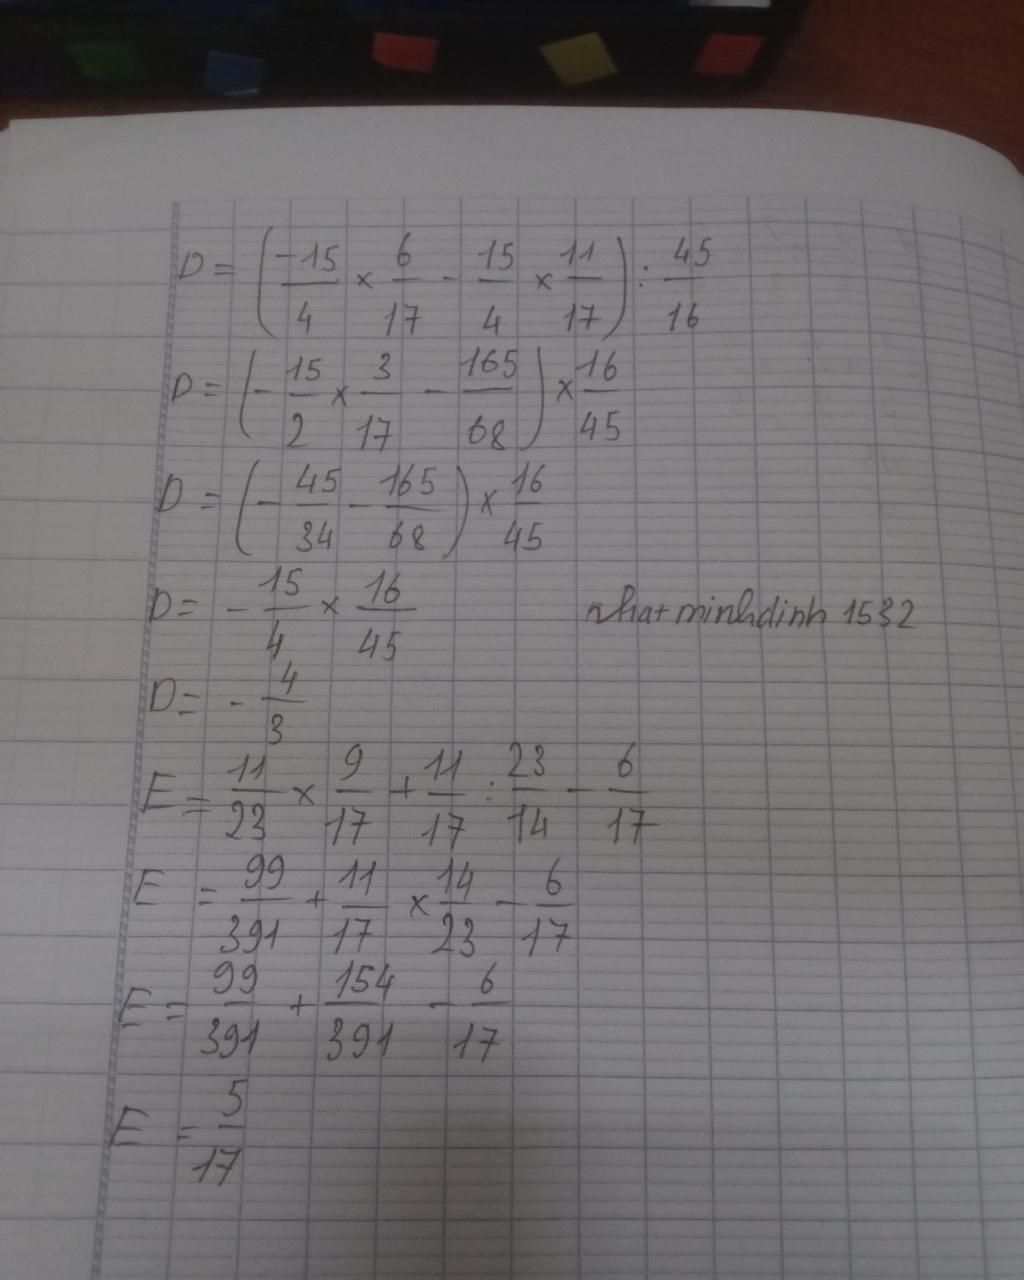 D = (-15/4 × 6/17 - 15/4 × 11/17) : 45/16
D = (- 15/2 × 3/17 - 165/68) × 16/45
D = (- 45/34 - 165/68) × 16/45
D = - 15/4 × 16/45
nhatminhdinh 1532
D = - 4/3
E = 11/23 × 9/17 + 11/17 : 23/14 - 6/17
E = 99/391 + 11/17 × 14/23 - 6/17
E = 99/391 + 154/391 - 6/17
E = 5/17